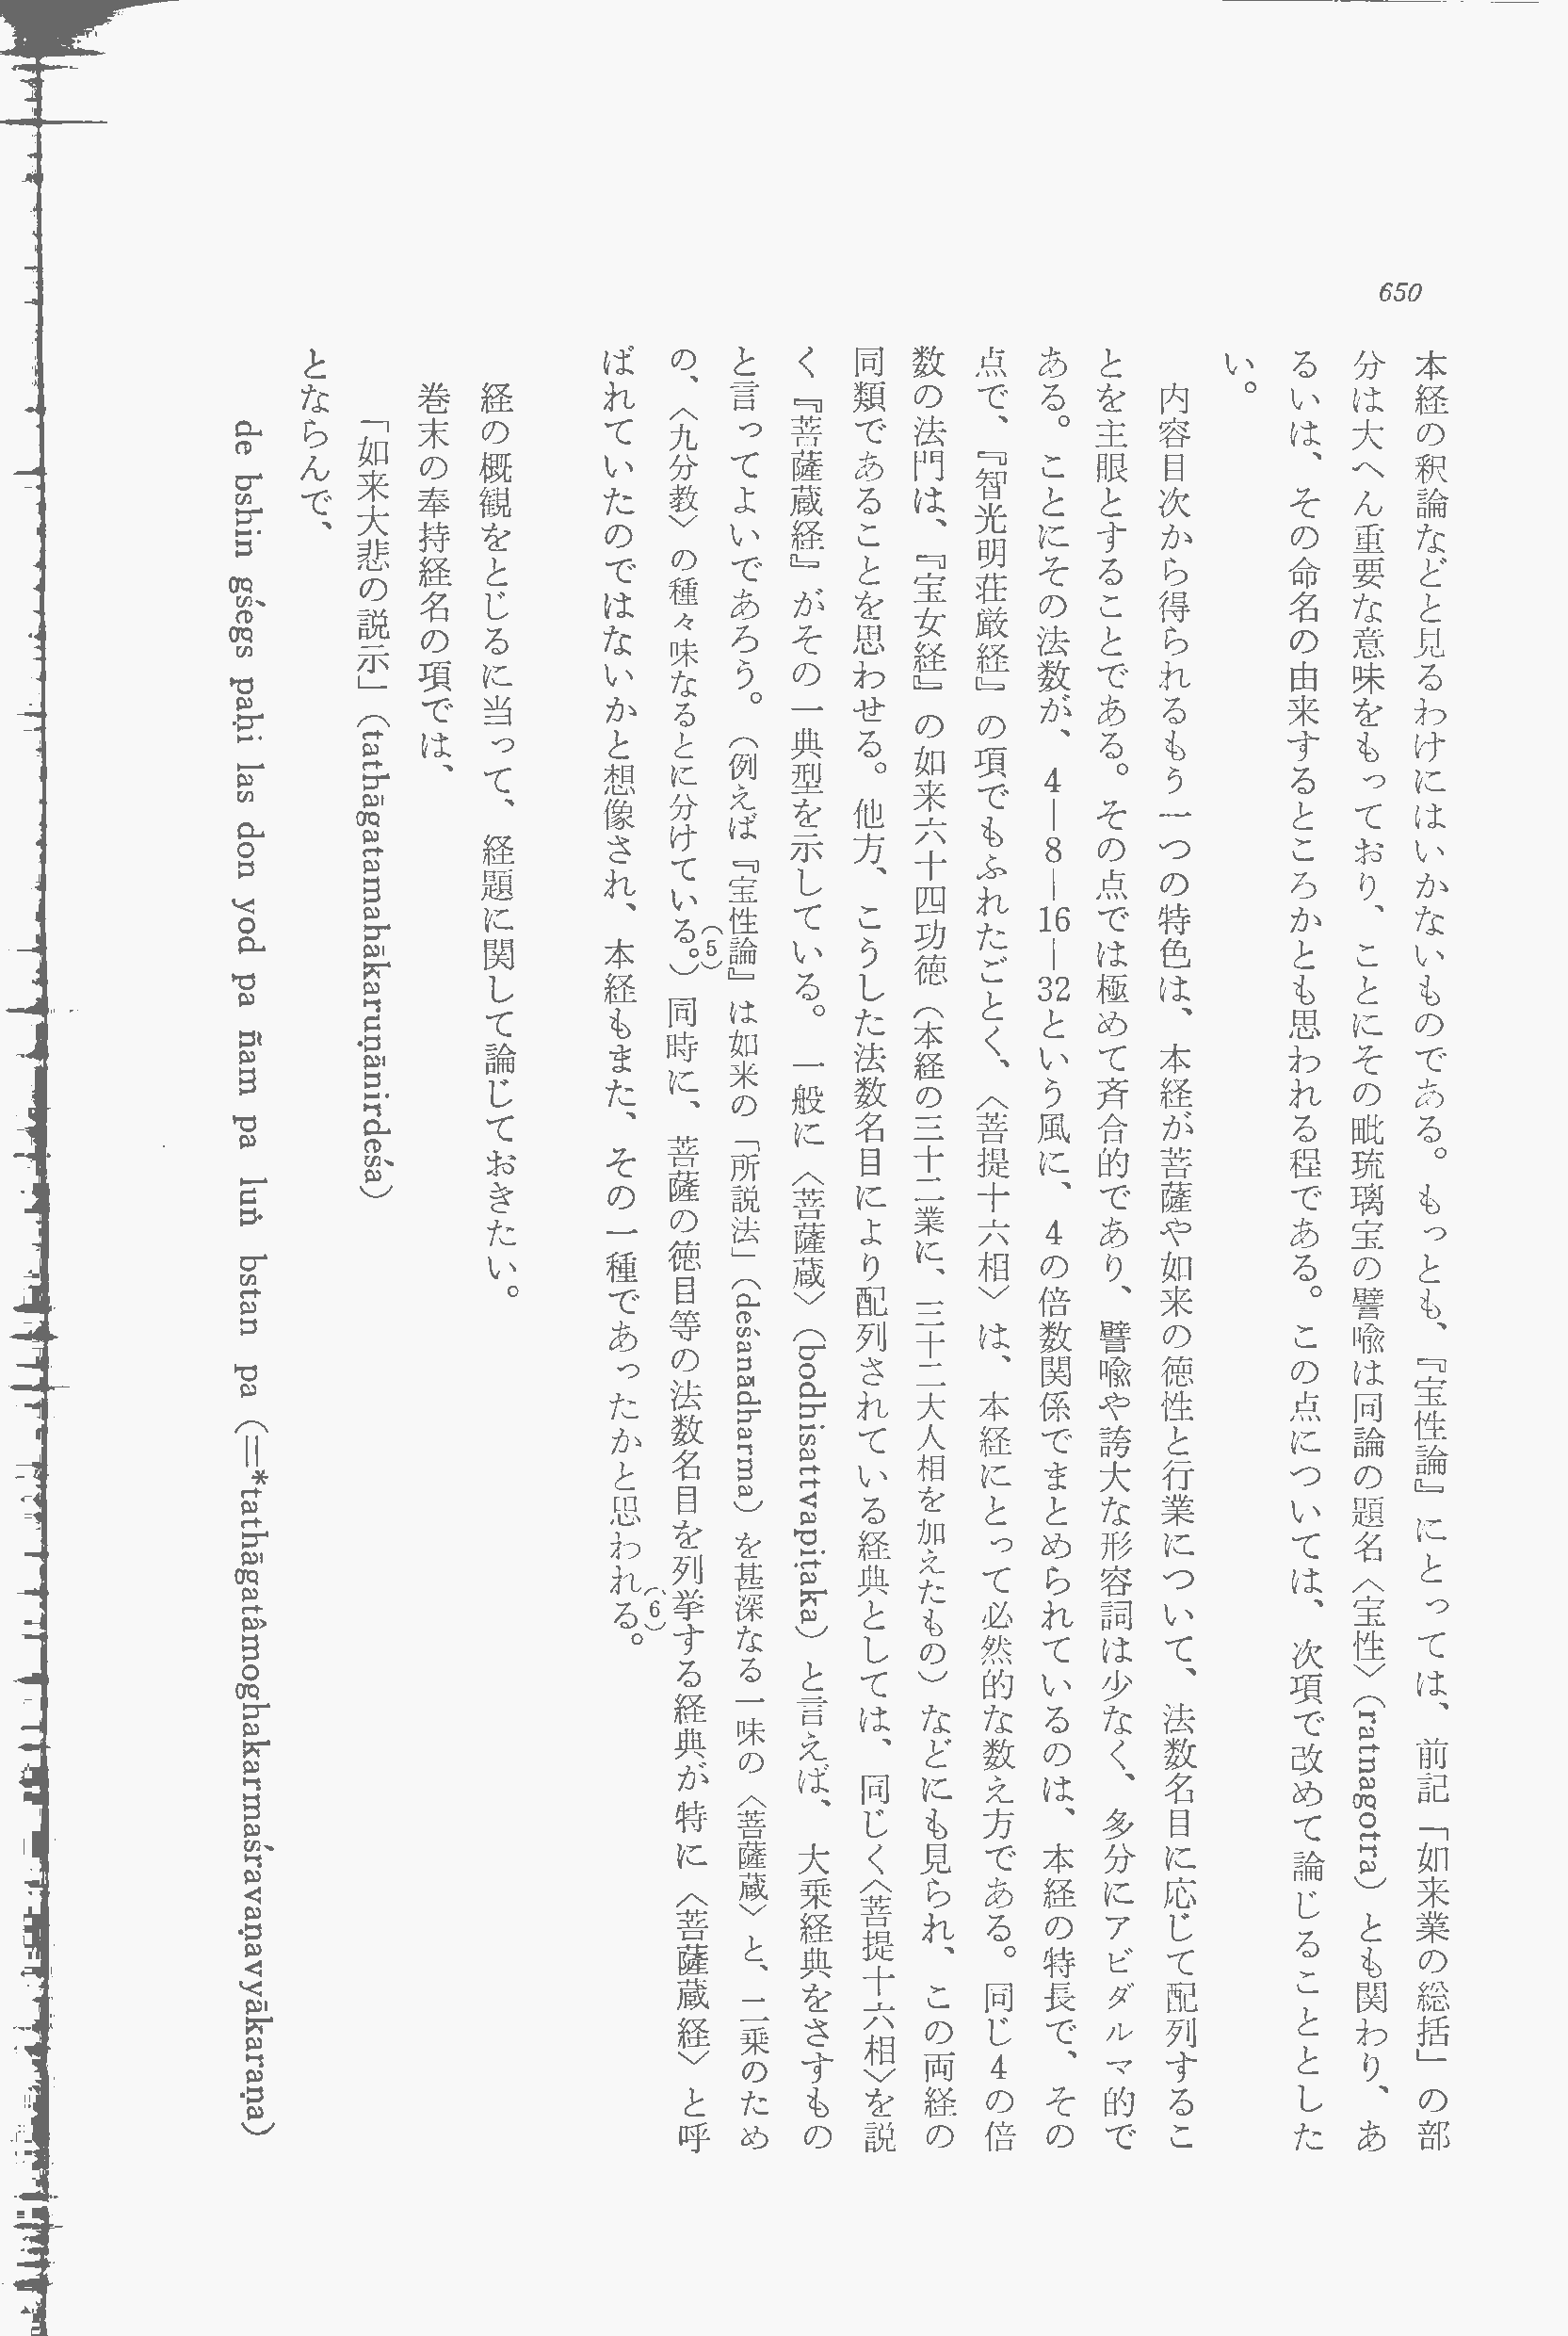 650
本経の釈論などと見るわけにはいかないものである。もっとも、『宝性論』にとっては、前記「如来業の総括」の部
分は大へん重要な意味をもっており、ことにその毗琉璃宝の譬喩は同論の題名〈宝性〉(ratnagotra)とも関わり、あ
るいは、その命名の由来するところかとも思われる程である。この点については、次項で改めて論じることとした
い。
内容目次から得られるもう一つの特色は、本経が菩薩や如来の徳性と行業について、法数名目に応じて配列するこ
とを主眼とすることである。その点では極めて斉合的であり、譬喩や誇大な形容詞は少なく、多分にアビダルマ的で
ある。ことにその法数が、4—8—16—32という風に、4の倍数関係でまとめられているのは、本経の特長で、その
点で、『智光明荘厳経』の項でもふれたごとく、〈菩提十六相〉は、本経にとって必然的な数え方である。同じ4の倍
数の法門は、『宝女経』の如来六十四功徳(本経の三十二業に、三十二大人相を加えたもの)などにも見られ、この両経の
同類であることを思わせる。他方、こうした法数名目により配列されている経典としては、同じく〈菩提十六相〉を説
く『菩薩蔵経』がその一典型を示している。一般に〈菩薩蔵〉(bodhisattvapiṭaka)と言えば、大乗経典をさすもの
と言ってよいであろう。(例えば『宝性論』は如来の「所説法」(deśanādharma)を甚深なる一味の〈菩薩蔵〉と、二乗のため
の、〈九分教〉の種々味なるとに分けている。)(5)同時に、菩薩の徳目等の法数名目を列挙する経典が特に〈菩薩蔵経〉と呼
ばれていたのではないかと想像され、本経もまた、その一種であったかと思われる。(6)
経の概観をとじるに当って、経題に関して論じておきたい。
巻末の奉持経名の項では、
「如来大悲の説示」(tathāgatamahākaruṇānirdeśa)
とならんで、
de bshin gśegs paḥi las don yod pa ñam pa luṅ bstan pa (=*tathāgatâmoghakarmaśravaṇavyākaraṇa)